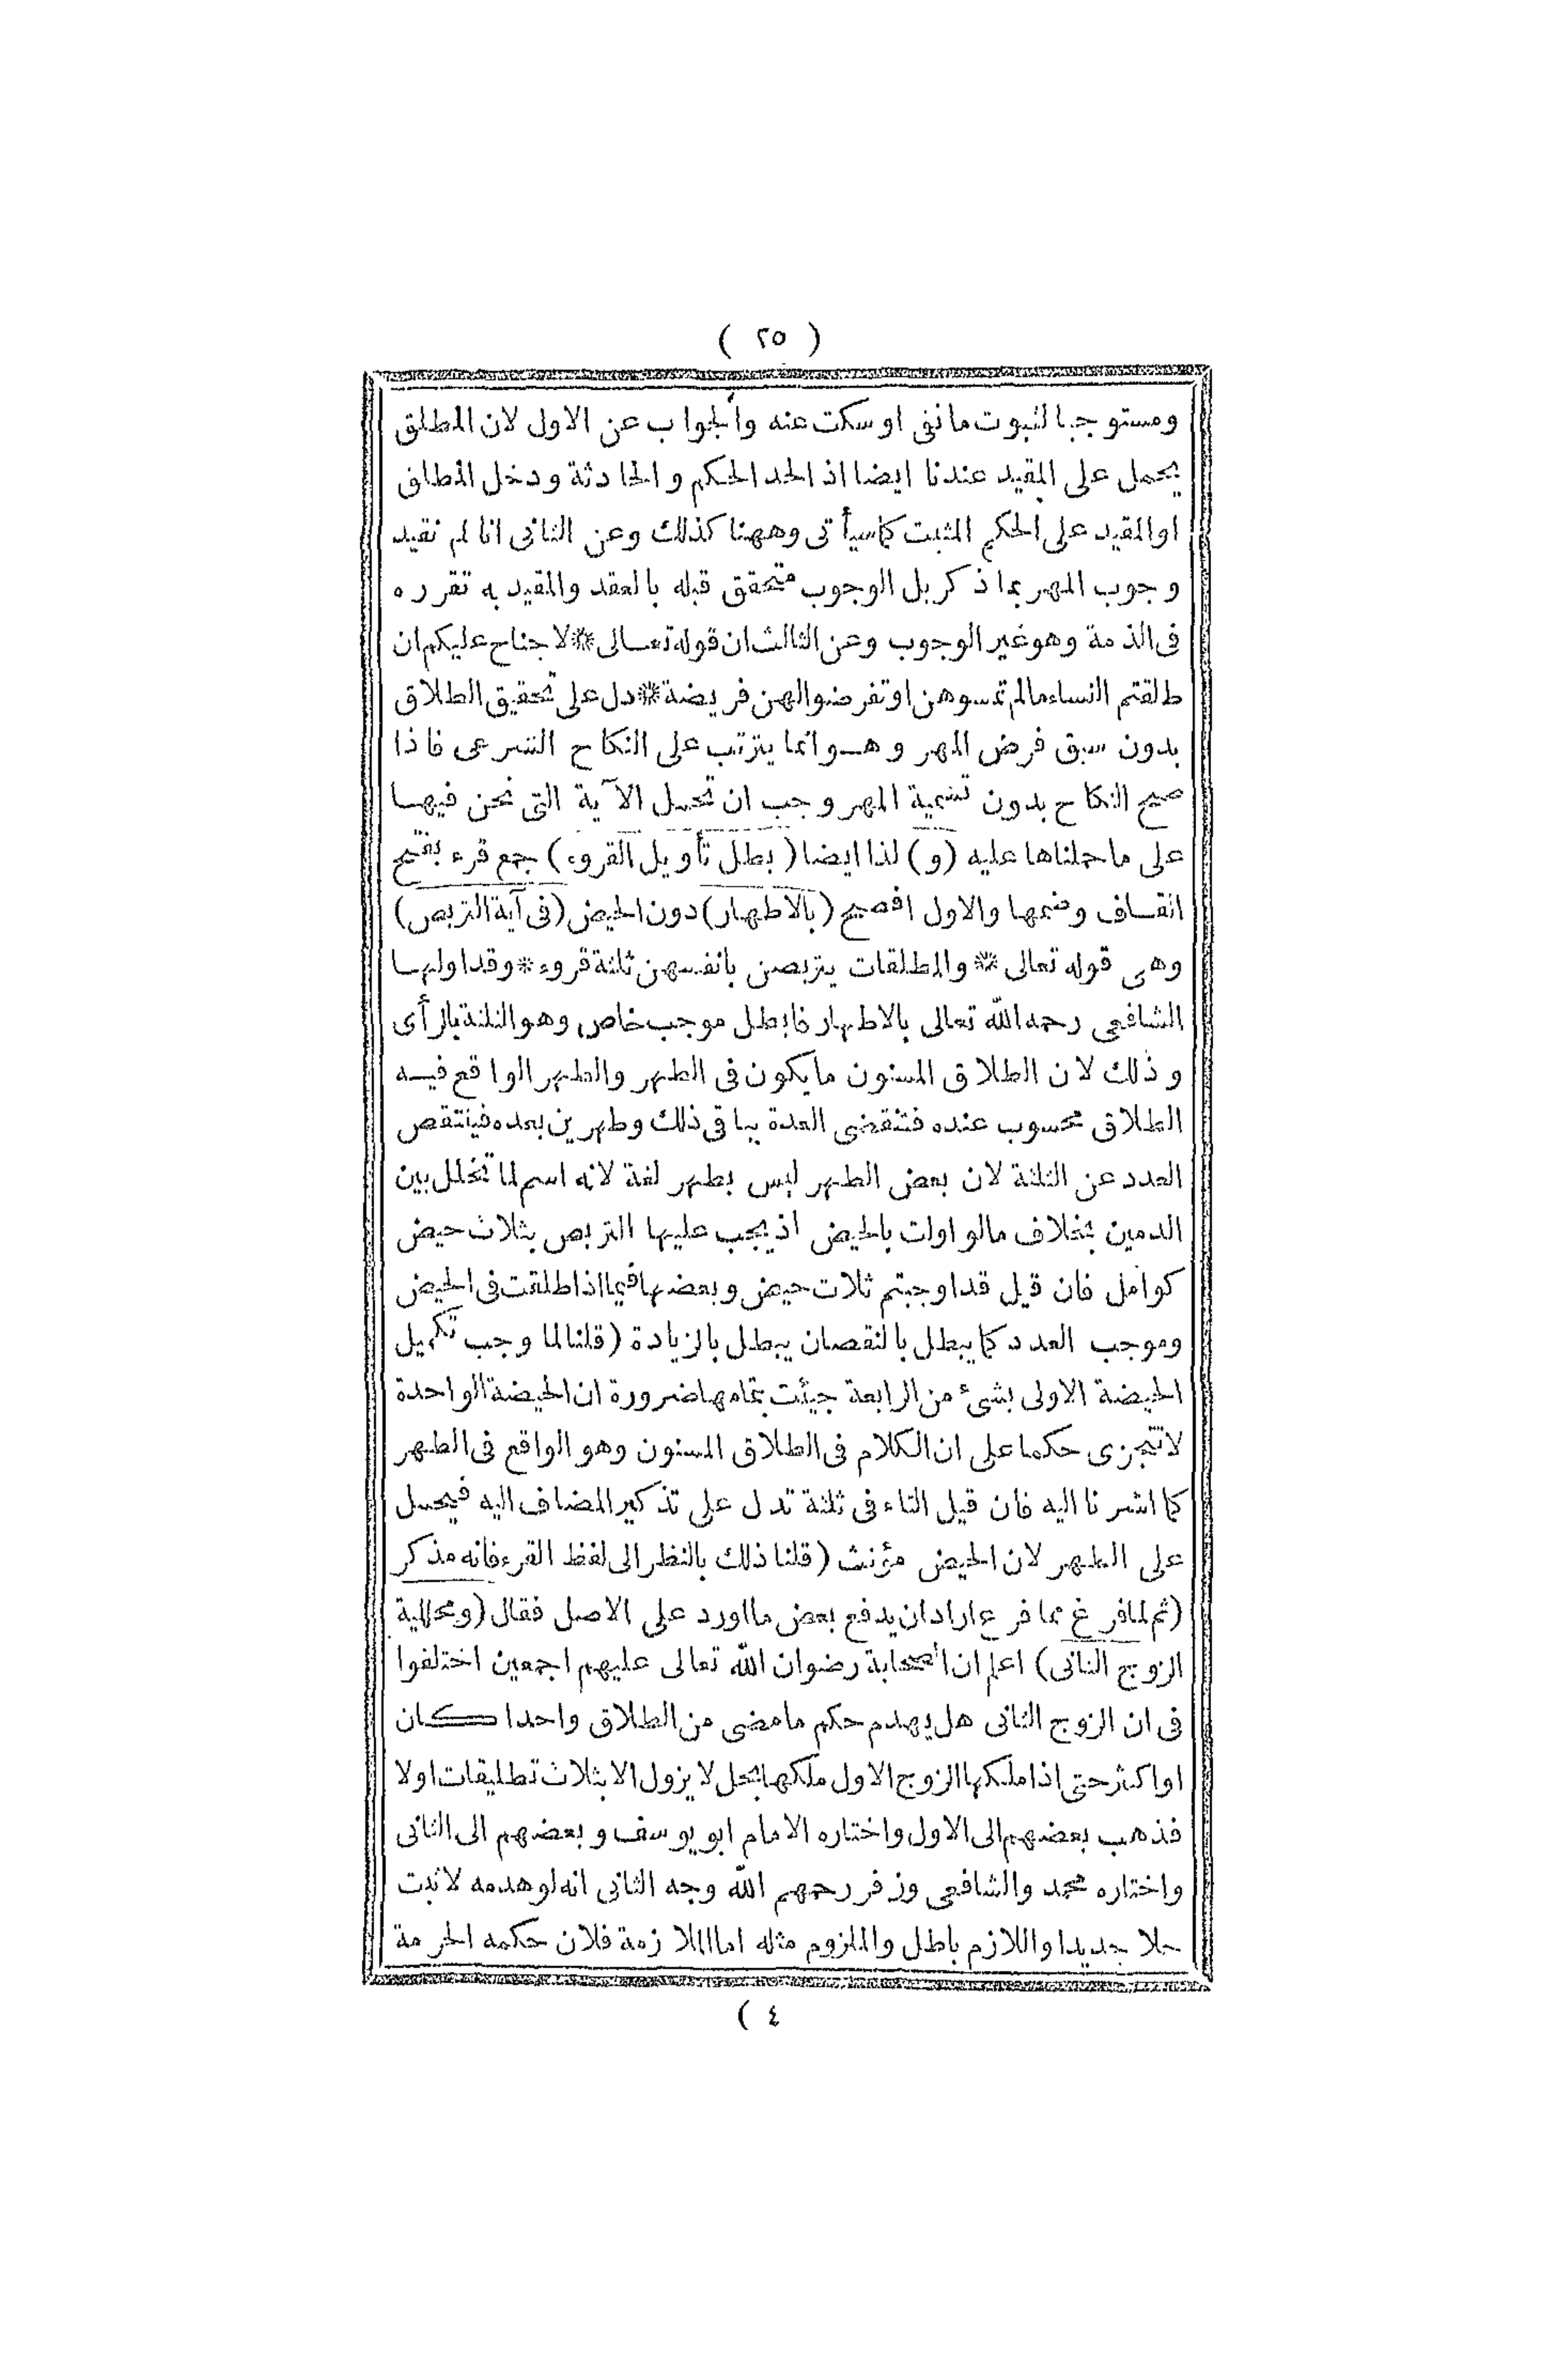 ( ٢٥ )
ومستوجبا لثبوت ما نفى او سكت عنه والجواب عن الاول لان المطلق
يحمل على المقيد عندنا ايضا اذ اتحد الحكم والحادثة ودخل المطلق
او المقيد على الحكم المثبت كما سيأتى وههنا كذلك وعن الثانى انا لم نقيد
وجوب المهر بما ذكر بل الوجوب متحقق قبله بالعقد والمقيد به تقرره
فى الذمة وهو غير الوجوب وعن الثالث ان قوله تعالى * لا جناح عليكم ان
طلقتم النساء ما لم تمسوهن او تفرضوا لهن فريضة * دل على تحقيق الطلاق
بدون سبق فرض المهر وهو انما يترتب على النكاح الشرعى فاذا
صح النكاح بدون تسمية المهر وجب ان تحمل الآية التى نحن فيها
على ما حملناها عليه (و) لذا ايضا (بطل تأويل القروء) جمع قرء بفتح
القاف وضمها والاول افصح (بالاطهار) دون الحيض (فى آية التربص)
وهى قوله تعالى * والمطلقات يتربصن بانفسهن ثلثة قروء * وقد اولها
الشافعى رحمه الله تعالى بالاطهار فابطل موجب خاص وهو الثلثة بالرأى
وذلك لان الطلاق المسنون ما يكون فى الطهر والطهر الواقع فيه
الطلاق محسوب عنده فتنقضى العدة بباقى ذلك وطهرين بعده فينتقص
العدد عن الثلثة لان بعض الطهر ليس بطهر لغة لانه اسم لما تخلل بين
الدمين بخلاف ما لو اولت بالحيض اذ يجب عليها التربص بثلاث حيض
كوامل فان قيل قد اوجبتم ثلاث حيض وبعضها فيما اذا طلقت فى الحيض
وموجب العدد كما يبطل بالنقصان يبطل بالزيادة (قلنا لما وجب تكميل
الحيضة الاولى بشىء من الرابعة جيئت بتمامها ضرورة ان الحيضة الواحدة
لا تتجزى حكما على ان الكلام فى الطلاق المسنون وهو الواقع فى الطهر
كما اشرنا اليه فان قيل التاء فى ثلثة تدل على تذكير المضاف اليه فيحمل
على الطهر لان الحيض مؤنث (قلنا ذلك بالنظر الى لفظ القرء فانه مذكر
(ثم لما فرغ مما فرع اراد ان يدفع بعض ما اورد على الاصل فقال (ومحللية
الزوج الثانى) اعلم ان الصحابة رضوان الله تعالى عليهم اجمعين اختلفوا
فى ان الزوج الثانى هل يهدم حكم ما مضى من الطلاق واحدا كان
او اكثر حتى اذا ملكها الزوج الاول ملكها بحل لا يزول الا بثلاث تطليقات او لا
فذهب بعضهم الى الاول واختاره الامام ابو يوسف وبعضهم الى الثانى
واختاره محمد والشافعى وزفر رحمهم الله وجه الثانى انه لو هدمه لاثبت
حلا جديدا واللازم باطل والملزوم مثله اما الملازمة فلان حكمه الحرمة
( ٤